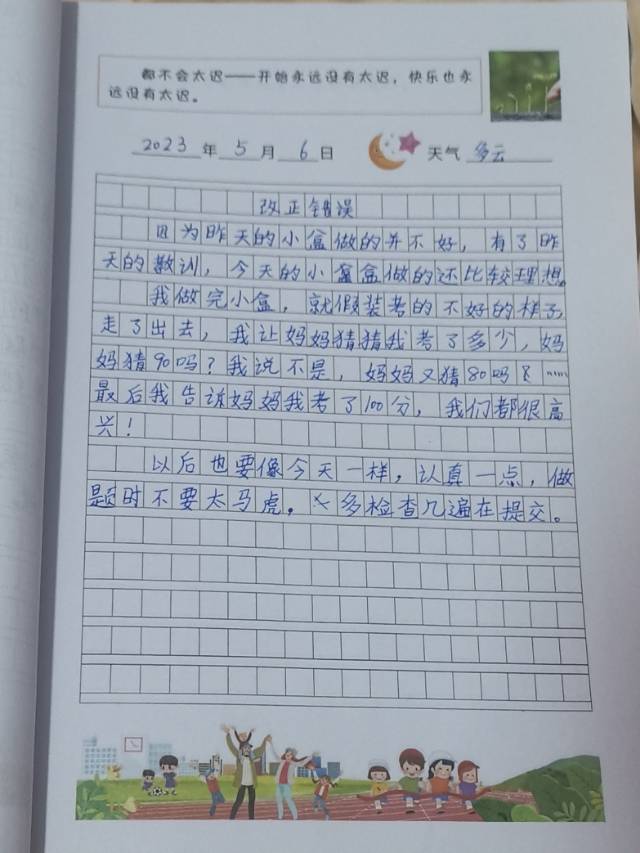 都不会太迟——开始永远没有太迟，快乐也永
远没有太迟。
2023年5月6日 天气 多云
改正错误
因为昨天的小盒做的并不好，有了昨
天的教训，今天的小盒做的还比较理想。
我做完小盒，就假装考的不好的样子，
走了出去，我让妈妈猜猜我考了多少，妈
妈猜90吗？我说不是，妈妈又猜80吗……
最后我告诉妈妈我考了100分，我们都很高
兴！
以后也要像今天一样，认真一点，做
题时不要太马虎。多检查几遍在提交。